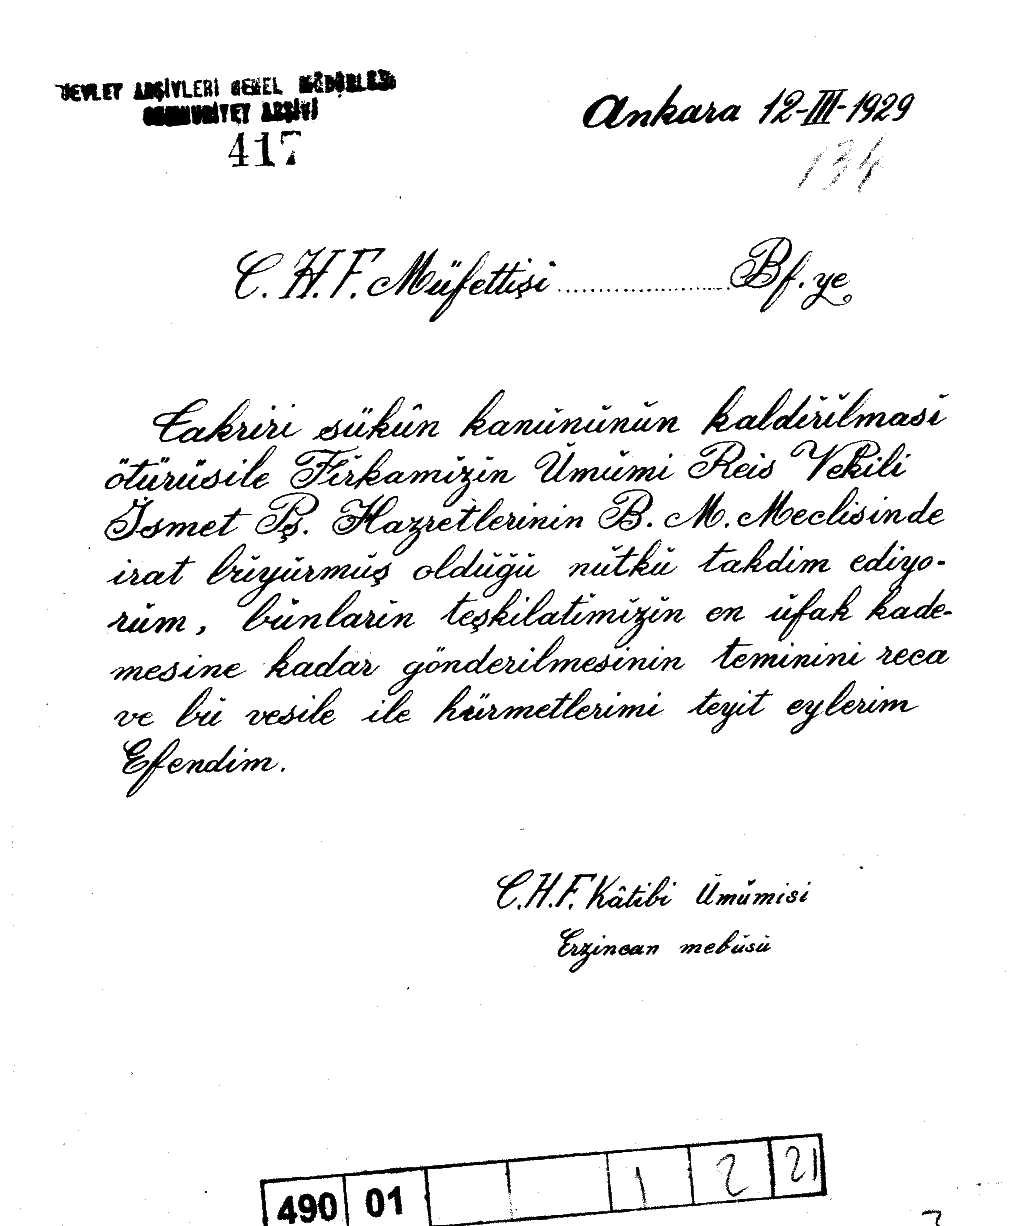 DEVLET ARŞİVLERİ GENEL MÜDÜRLÜĞÜ
CUMHURİYET ARŞİVİ
417
Ankara 12-III-1929
134
C. H. F. Müfettişi ........................ Bf. ye
Takriri sükûn kanununun kaldirilmasi
ötürüsile Firkamizin Umumi Reis Vekili
İsmet Pş. Hazretlerinin B. M. Meclisinde
irat buyurmuş olduğu nutku takdim ediyo-
rum, bunlarin teşkilatimizin en ufak kade-
mesine kadar gönderilmesinin teminini reca
ve bu vesile ile hürmetlerimi teyit eylerim
Efendim.
C.H.F. Kâtibi Umumisi
Erzincan mebusu
490 01 1 2 21